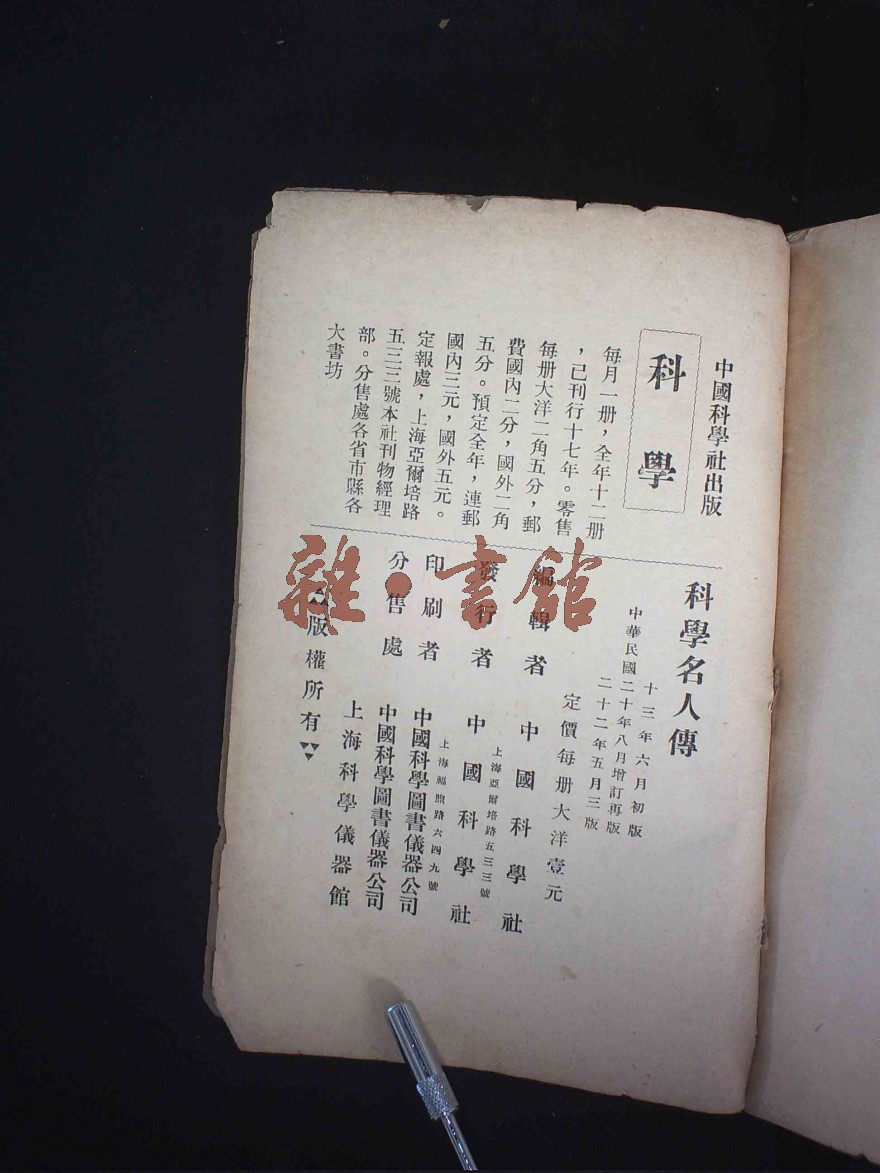 中國科學社出版
科學
每月一册，全年十二册
，已刊行十七年。零售
每册大洋二角五分，郵
費國內二分，國外二角
五分。預定全年，連郵
國內三元，國外五元。
定報處，上海亞爾培路
五三三號本社刊物經理
部。分售處各省市縣各
大書坊
科學名人傳
十三年六月初版
中華民國二十年八月增訂再版
二十二年五月三版
定價每册大洋壹元
編輯者 中國科學社
上海亞爾培路五三三號
發行者 中國科學社
上海福煦路六四九號
印刷者 中國科學圖書儀器公司
分售處 中國科學圖書儀器公司
上海科學儀器館
版權所有
雜·書館